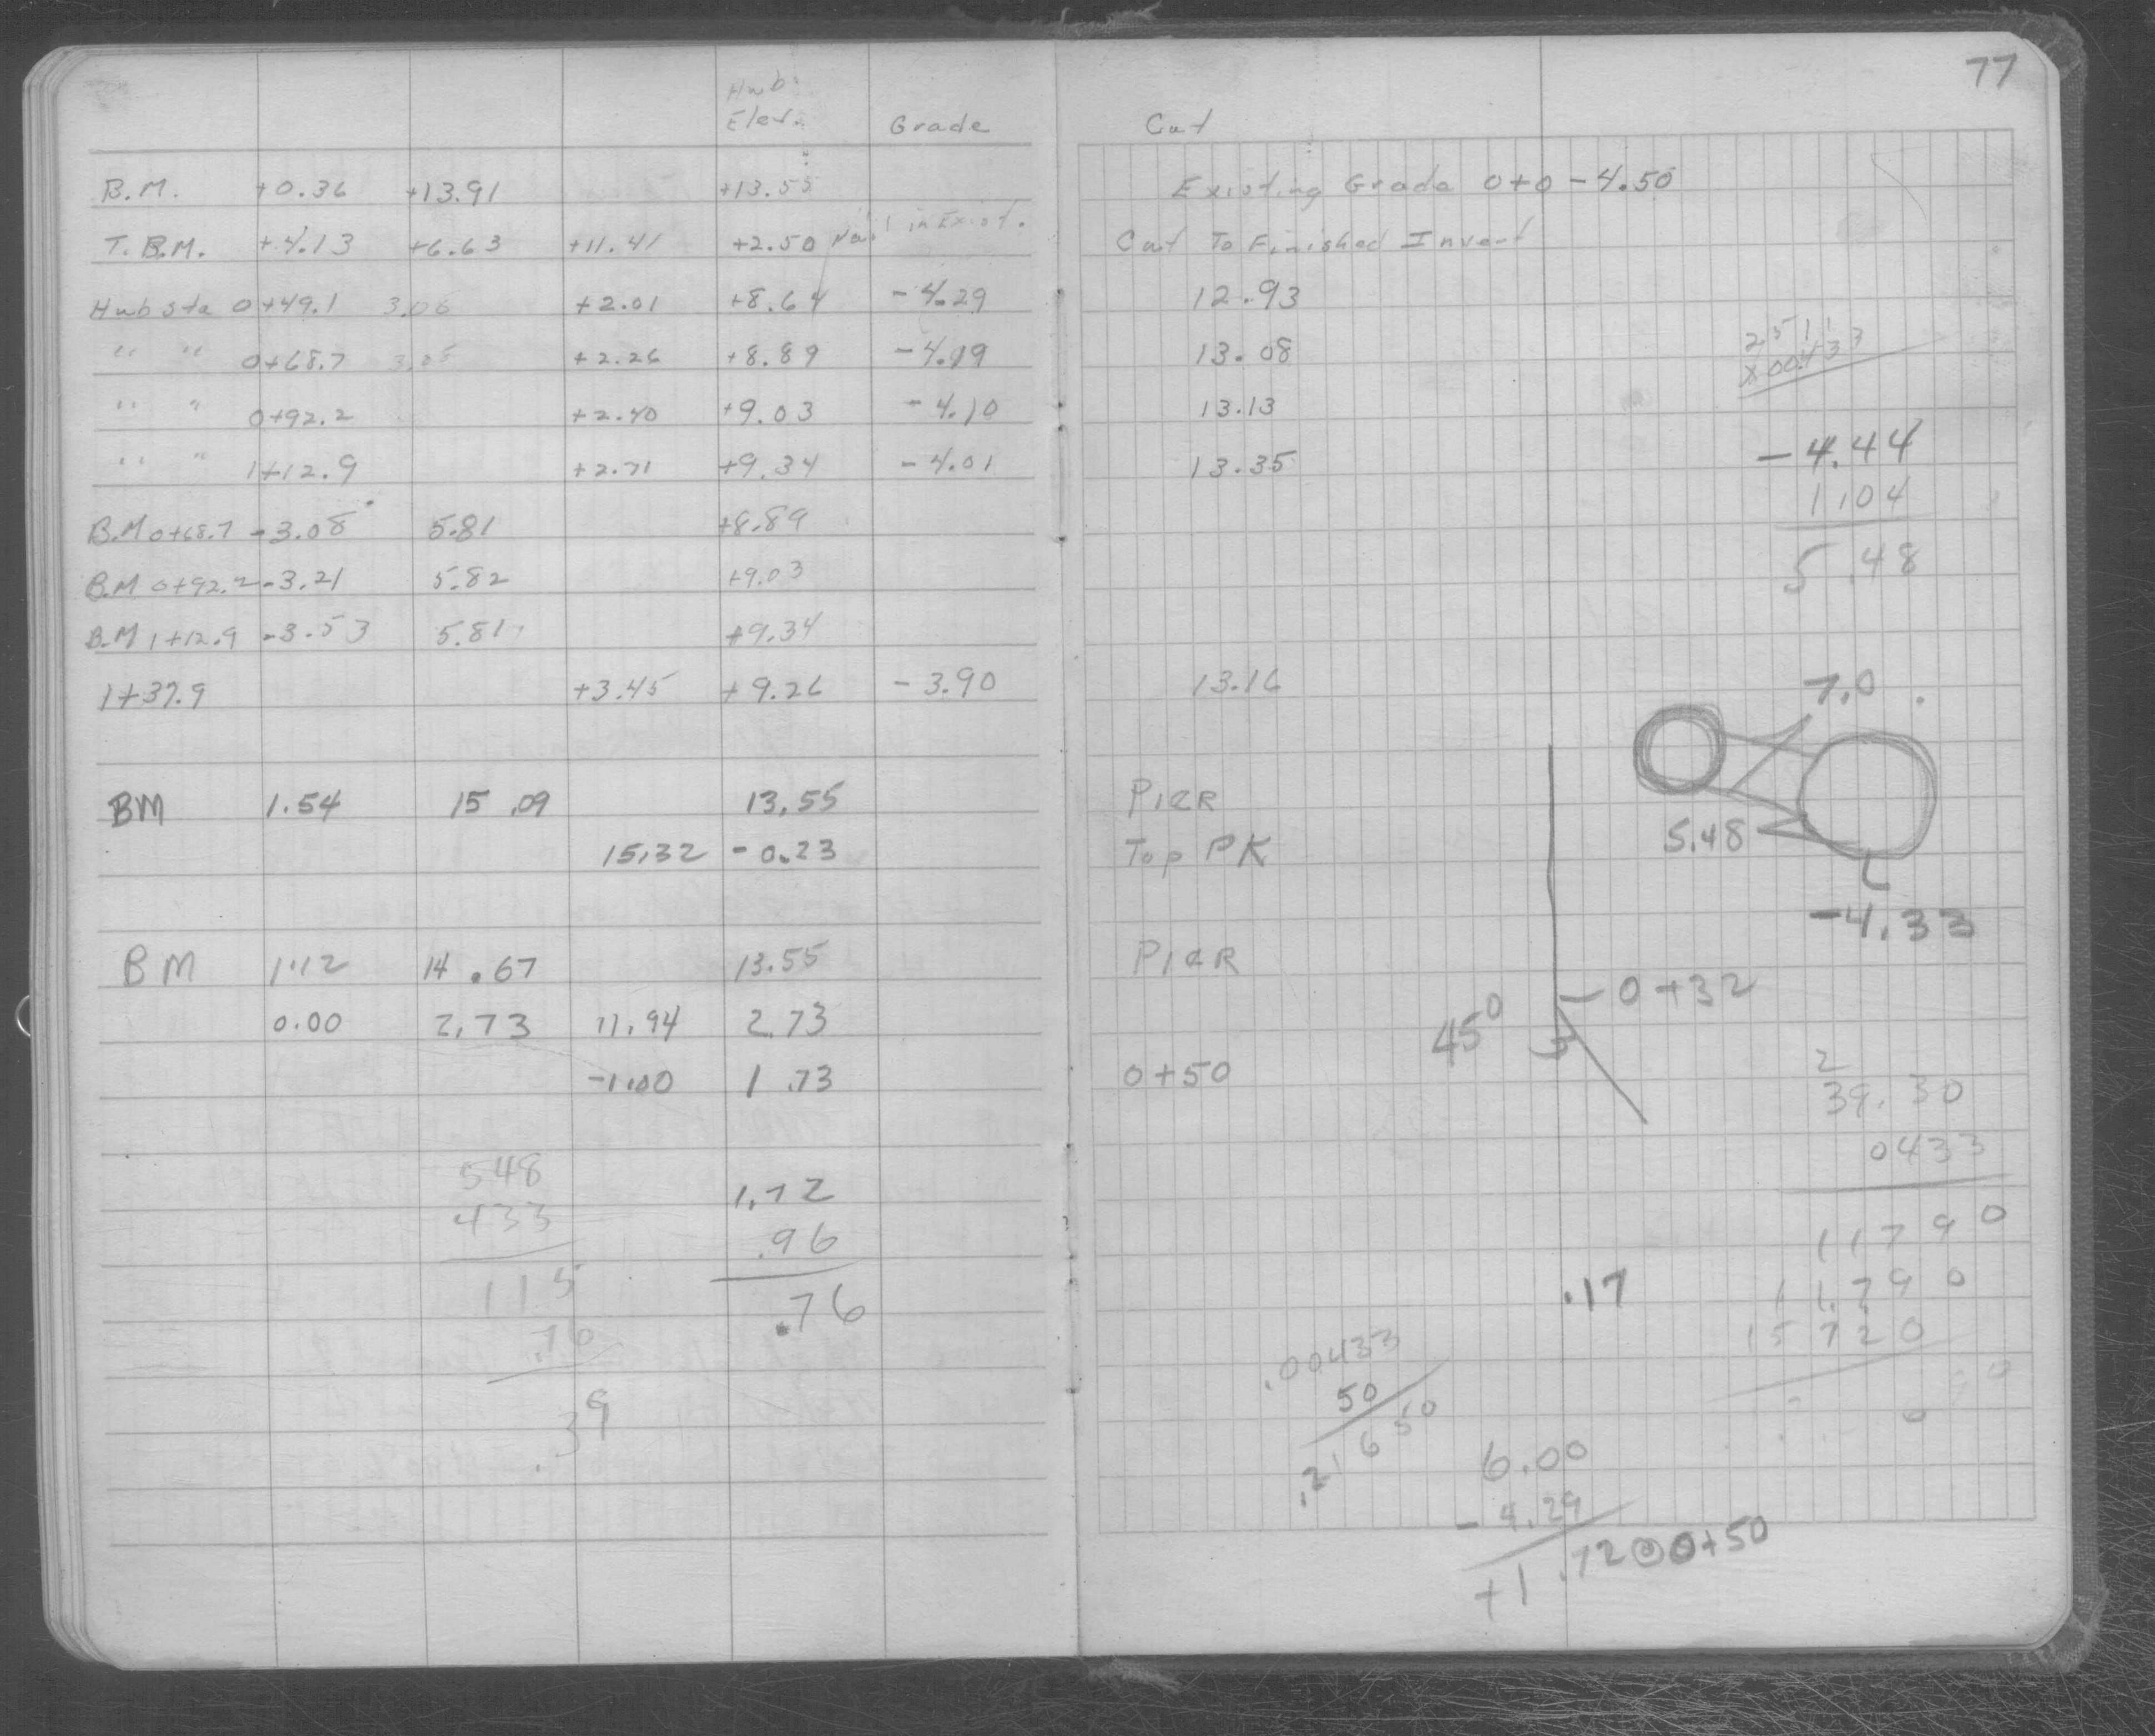 77
Hub
Elev. Grade Cut
B.M. +0.36 +13.91 +13.55 Existing Grade 0+0 -4.50
T.B.M. +4.13 +6.63 +11.41 +2.50 Nail in Exist. Cut To Finished Invert
Hub sta 0+49.1 3.06 +2.01 +8.64 -4.29 12.93
" " 0+68.7 +2.26 +8.89 -4.19 13.08
" " 0+92.2 +2.40 +9.03 -4.10 13.13
" " 1+12.9 +2.71 +9.34 -4.01 13.35
B.M 0+68.7 -3.08 5.81 +8.89
B.M 0+92.2 -3.21 5.82 +9.03
B.M 1+12.9 -3.53 5.81 +9.34
1+37.9 +3.45 +9.26 -3.90 13.16
BM 1.54 15.09 13.55 PIER
15.32 -0.23 Top PK
BM 1.12 14.67 13.55 PIER
0.00 2.73 11.94 2.73
-1.00 1.73 0+50
548
433
115
.76
.39
1.72
.96
.76
2511
X00433
-4.44
1.04
5.48
7.0
5.48
-4.33
0+32
45°
2
39.30
0433
11790
11790
15720
.17
.00433
50
.21650
6.00
-4.29
+1.72@0+50